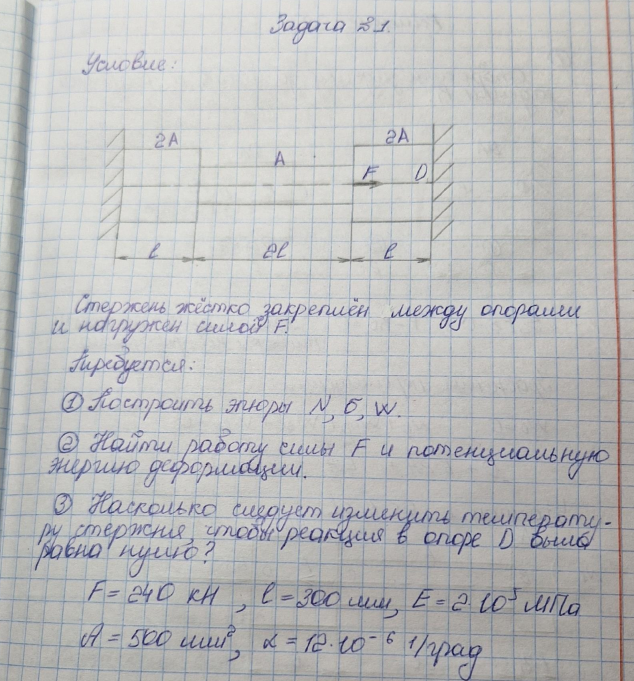 Задача №1.
Условие:
2A
A
2A
F
D
l
2l
l
Стержень жёстко закреплён между опорами
и нагружен силой F.
Требуется:
① Построить эпюры N, σ, W.
② Найти работу силы F и потенциальную
энергию деформации.
③ Насколько следует изменить температу-
ру стержня, чтобы реакция в опоре D была
равна нулю?
F = 240 кН, l = 300 мм, E = 2·10⁵ МПа
A = 500 мм², α = 12·10⁻⁶ 1/град